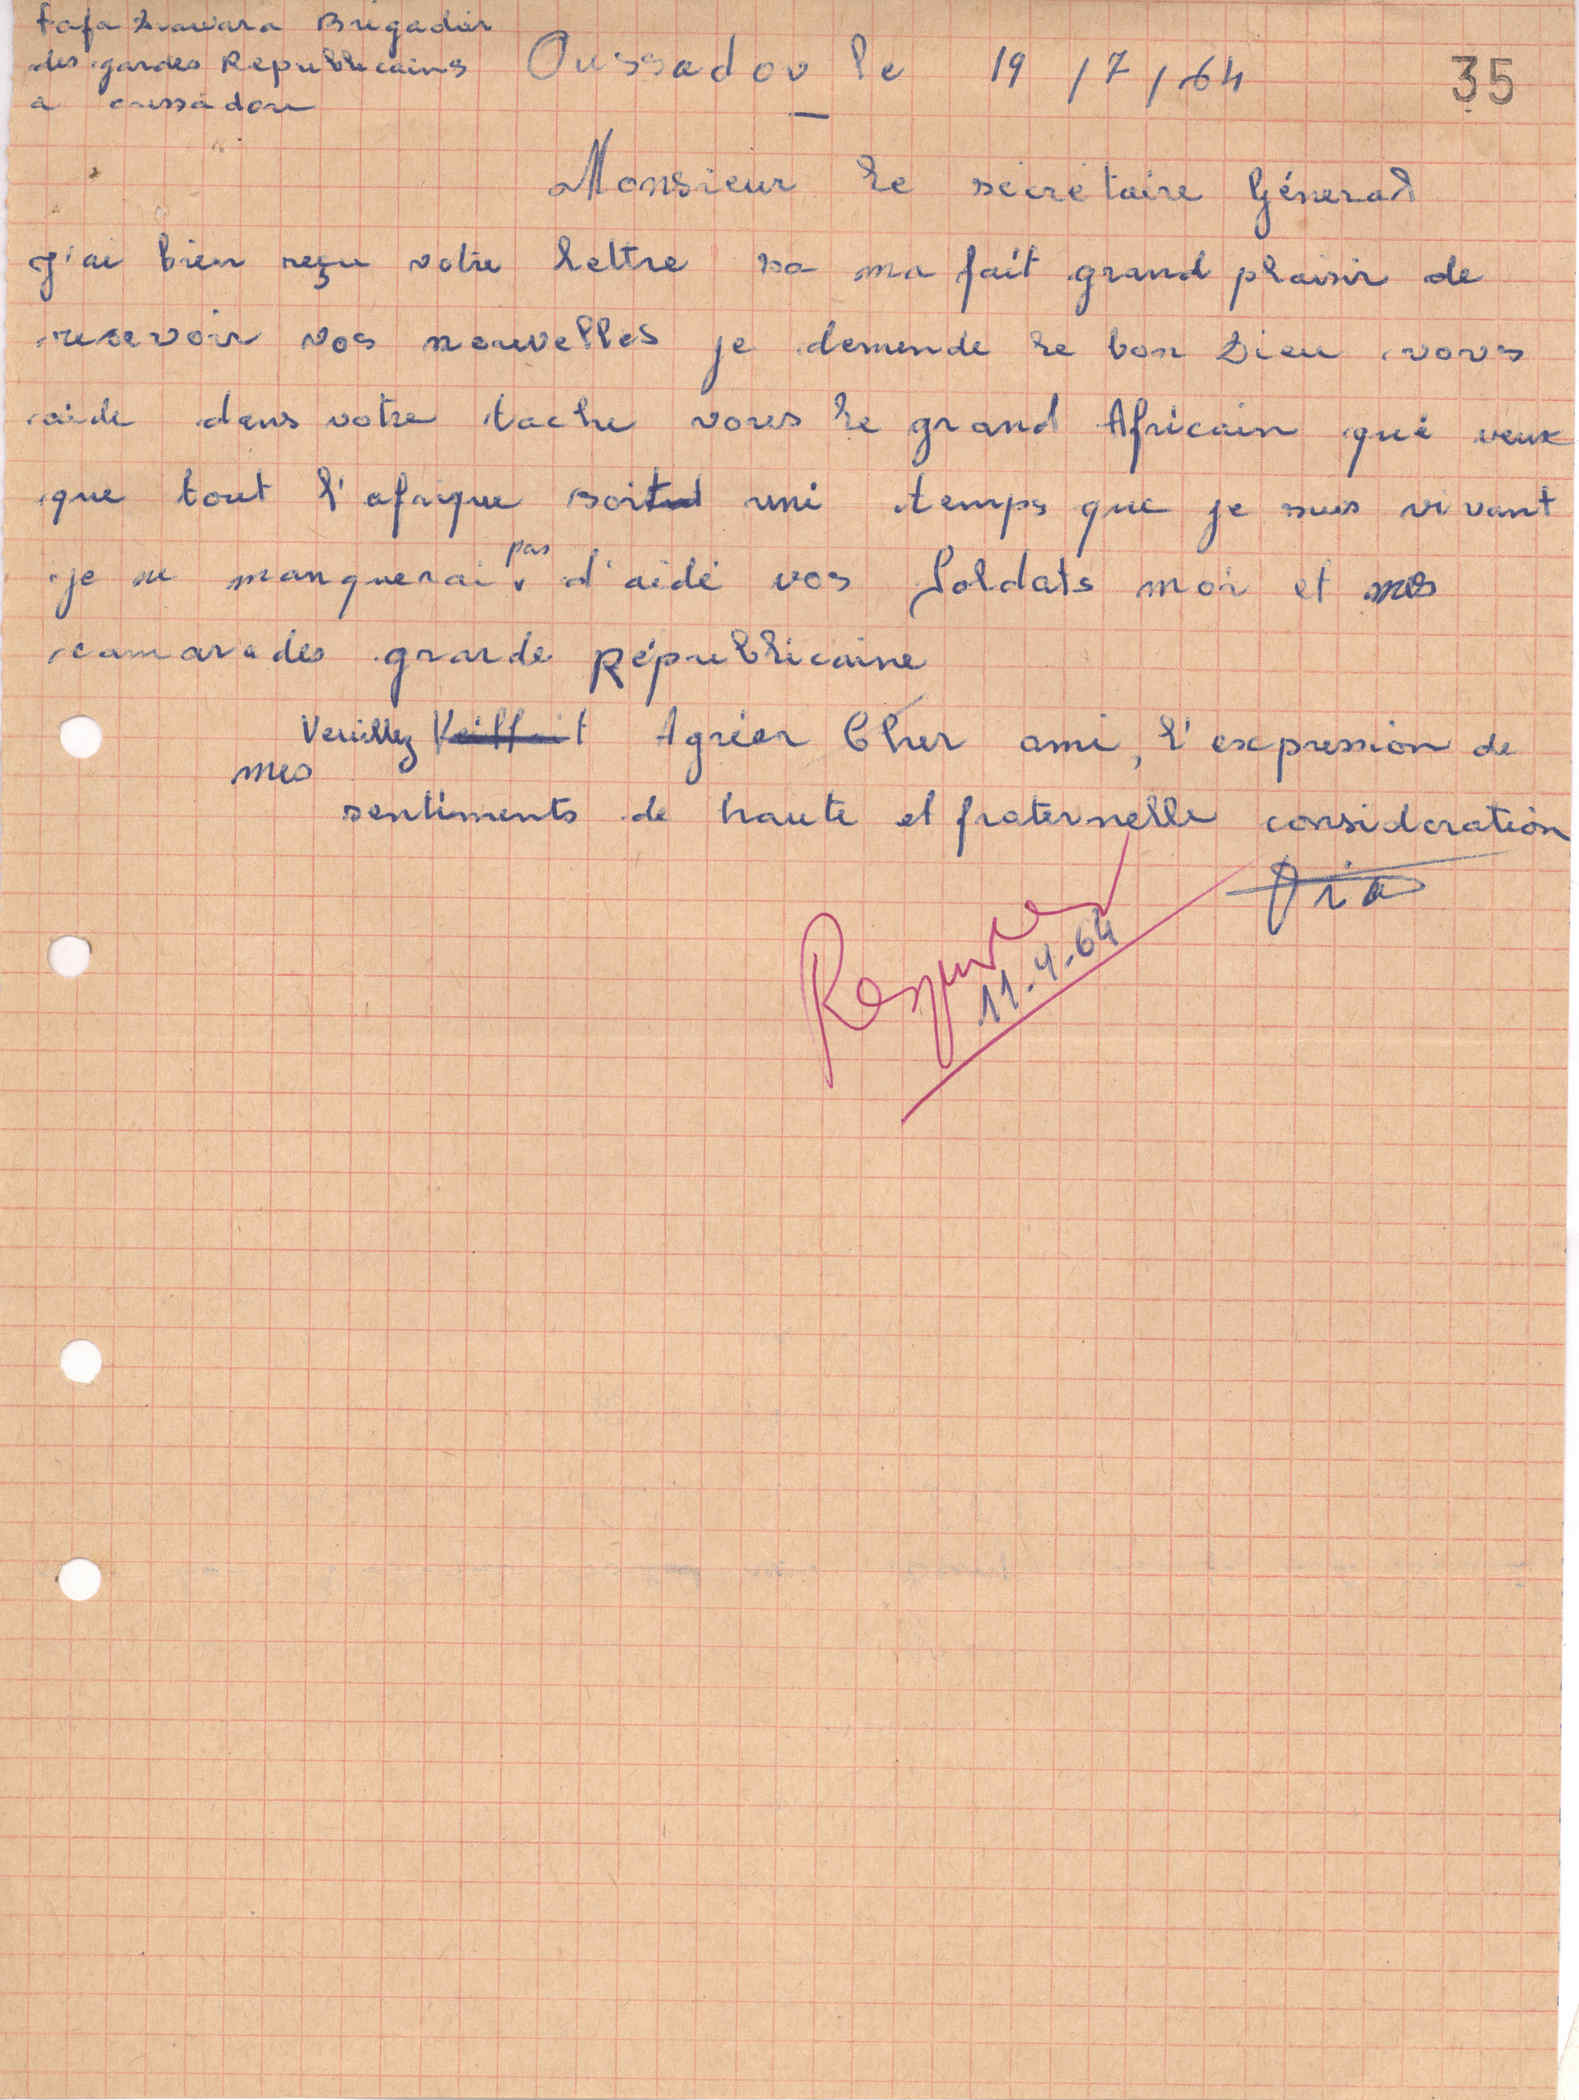 Fafa Diawara Brigadier
des gardes Republicains
a oussadou
Oussadou le 19 / 7 / 64
35
Monsieur le sécretaire Géneral
J'ai bien reçu votre lettre sa ma fait grand plaisir de
recevoir vos nouvelles je demende le bon Dieu vous
aide dans votre tache vous le grand Africain qui veux
que tout l'afrique soit uni temps que je suis vivant
je ne manquerai pas d'aidé vos Soldats moi et mes
camarades grarde Républicaine
Veuillez Agréer Cher ami, l'expression de
mes
sentiments de haute et fraternelle consideration
Dia
11-4-64